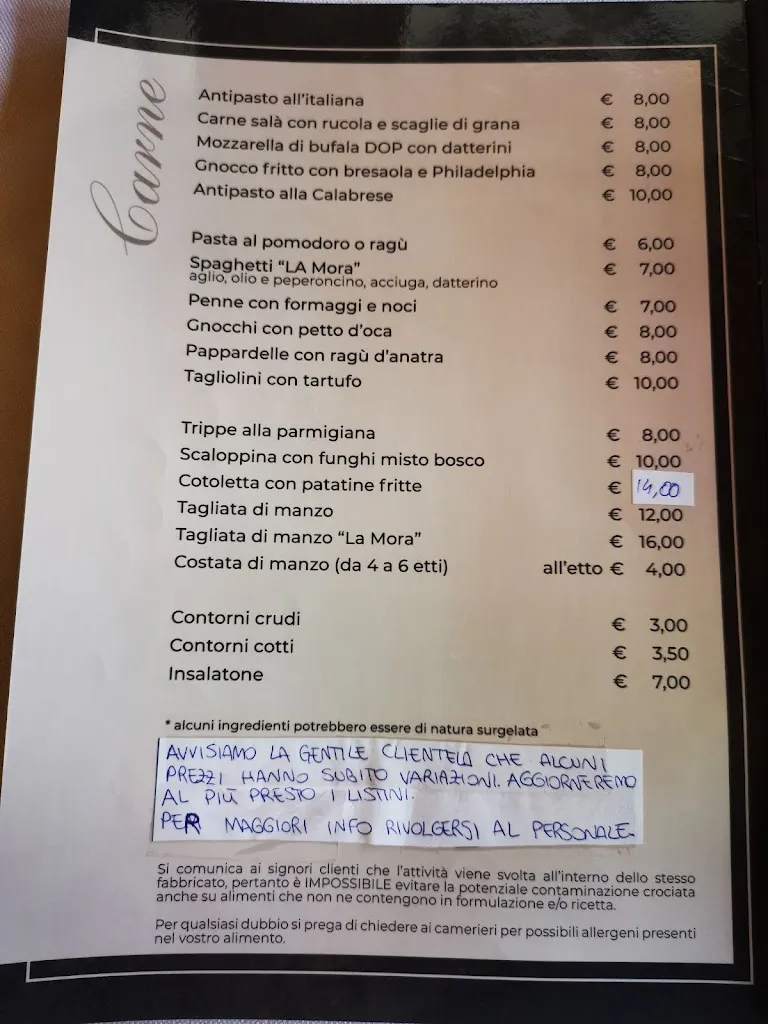 Carne
Antipasto all'italiana € 8,00
Carne salà con rucola e scaglie di grana € 8,00
Mozzarella di bufala DOP con datterini € 8,00
Gnocco fritto con bresaola e Philadelphia € 8,00
Antipasto alla Calabrese € 10,00
Pasta al pomodoro o ragù € 6,00
Spaghetti "LA Mora" € 7,00
aglio, olio e peperoncino, acciuga, datterino
Penne con formaggi e noci € 7,00
Gnocchi con petto d'oca € 8,00
Pappardelle con ragù d'anatra € 8,00
Tagliolini con tartufo € 10,00
Trippe alla parmigiana € 8,00
Scaloppina con funghi misto bosco € 10,00
Cotoletta con patatine fritte € 14,00
Tagliata di manzo € 12,00
Tagliata di manzo "La Mora" € 16,00
Costata di manzo (da 4 a 6 etti) all'etto € 4,00
Contorni crudi € 3,00
Contorni cotti € 3,50
Insalatone € 7,00
* alcuni ingredienti potrebbero essere di natura surgelata
AVVISIAMO LA GENTILE CLIENTELA CHE ALCUNI
PREZZI HANNO SUBITO VARIAZIONI. AGGIORNEREMO
AL PIÙ PRESTO I LISTINI.
PER MAGGIORI INFO RIVOLGERSI AL PERSONALE.
Si comunica ai signori clienti che l'attività viene svolta all'interno dello stesso
fabbricato, pertanto è IMPOSSIBILE evitare la potenziale contaminazione crociata
anche su alimenti che non ne contengono in formulazione e/o ricetta.
Per qualsiasi dubbio si prega di chiedere ai camerieri per possibili allergeni presenti
nel vostro alimento.